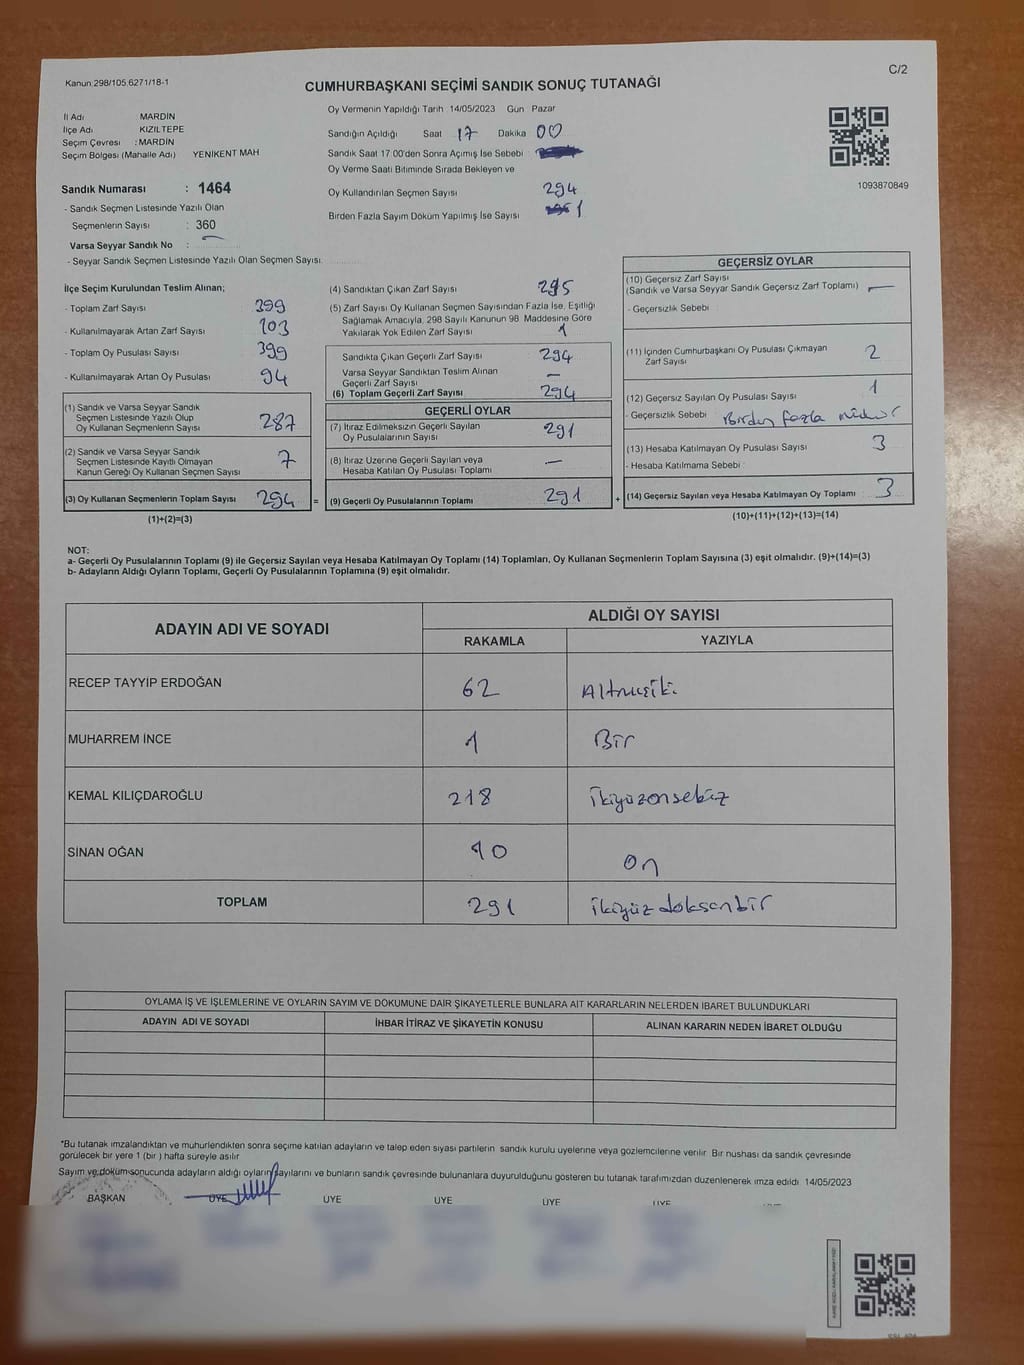 Kanun:298/105.6271/18-1
C/2
CUMHURBAŞKANI SEÇİMİ SANDIK SONUÇ TUTANAĞI
İl Adı MARDİN
İlçe Adı KIZILTEPE
Seçim Çevresi : MARDİN
Seçim Bölgesi (Mahalle Adı) YENİKENT MAH
Sandık Numarası : 1464
- Sandık Seçmen Listesinde Yazılı Olan
Seçmenlerin Sayısı : 360
Varsa Seyyar Sandık No :
- Seyyar Sandık Seçmen Listesinde Yazılı Olan Seçmen Sayısı:
Oy Vermenin Yapıldığı Tarih 14/05/2023 Gün Pazar
Sandığın Açıldığı Saat 17 Dakika 00
Sandık Saat 17:00'den Sonra Açılmış İse Sebebi
Oy Verme Saati Bitiminde Sırada Bekleyen ve
Oy Kullandırılan Seçmen Sayısı 294
Birden Fazla Sayım Döküm Yapılmış İse Sayısı 1
1093870849
İlçe Seçim Kurulundan Teslim Alınan;
- Toplam Zarf Sayısı 399
- Kullanılmayarak Artan Zarf Sayısı 103
- Toplam Oy Pusulası Sayısı 399
- Kullanılmayarak Artan Oy Pusulası 94
(1) Sandık ve Varsa Seyyar Sandık
Seçmen Listesinde Yazılı Olup
Oy Kullanan Seçmenlerin Sayısı 287
(2) Sandık ve Varsa Seyyar Sandık
Seçmen Listesinde Kayıtlı Olmayan
Kanun Gereği Oy Kullanan Seçmen Sayısı 7
(3) Oy Kullanan Seçmenlerin Toplam Sayısı 294 =
(1)+(2)=(3)
(4) Sandıktan Çıkan Zarf Sayısı 295
(5) Zarf Sayısı Oy Kullanan Seçmen Sayısından Fazla İse, Eşitliği
Sağlamak Amacıyla, 298 Sayılı Kanunun 98. Maddesine Göre
Yakılarak Yok Edilen Zarf Sayısı 1
Sandıkta Çıkan Geçerli Zarf Sayısı 294
Varsa Seyyar Sandıktan Teslim Alınan
Geçerli Zarf Sayısı —
(6) Toplam Geçerli Zarf Sayısı 294
GEÇERLİ OYLAR
(7) İtiraz Edilmeksizin Geçerli Sayılan
Oy Pusulalarının Sayısı 291
(8) İtiraz Üzerine Geçerli Sayılan veya
Hesaba Katılan Oy Pusulası Toplamı —
(9) Geçerli Oy Pusulalarının Toplamı 291 +
GEÇERSİZ OYLAR
(10) Geçersiz Zarf Sayısı
(Sandık ve Varsa Seyyar Sandık Geçersiz Zarf Toplamı) —
- Geçersizlik Sebebi
(11) İçinden Cumhurbaşkanı Oy Pusulası Çıkmayan
Zarf Sayısı 2
(12) Geçersiz Sayılan Oy Pusulası Sayısı 1
- Geçersizlik Sebebi Birden fazla mühür
(13) Hesaba Katılmayan Oy Pusulası Sayısı 3
- Hesaba Katılmama Sebebi :
(14) Geçersiz Sayılan veya Hesaba Katılmayan Oy Toplamı 3
(10)+(11)+(12)+(13)=(14)
NOT:
a- Geçerli Oy Pusulalarının Toplamı (9) ile Geçersiz Sayılan veya Hesaba Katılmayan Oy Toplamı (14) Toplamları, Oy Kullanan Seçmenlerin Toplam Sayısına (3) eşit olmalıdır. (9)+(14)=(3)
b- Adayların Aldığı Oyların Toplamı, Geçerli Oy Pusulalarının Toplamına (9) eşit olmalıdır.
ADAYIN ADI VE SOYADI
ALDIĞI OY SAYISI
RAKAMLA YAZIYLA
RECEP TAYYİP ERDOĞAN 62 Altmışiki
MUHARREM İNCE 1 Bir
KEMAL KILIÇDAROĞLU 218 ikiyüzonsekiz
SİNAN OĞAN 10 On
TOPLAM 291 ikiyüzdoksanbir
OYLAMA İŞ VE İŞLEMLERİNE VE OYLARIN SAYIM VE DÖKÜMÜNE DAİR ŞİKAYETLERLE BUNLARA AİT KARARLARIN NELERDEN İBARET BULUNDUKLARI
ADAYIN ADI VE SOYADI İHBAR İTİRAZ VE ŞİKAYETİN KONUSU ALINAN KARARIN NEDEN İBARET OLDUĞU
*Bu tutanak imzalandıktan ve mühürlendikten sonra seçime katılan adayların ve talep eden siyasi partilerin sandık kurulu üyelerine veya gözlemcilerine verilir. Bir nüshası da sandık çevresinde
görülecek bir yere 1 (bir) hafta süreyle asılır
Sayım ve döküm sonucunda adayların aldığı oyların sayılarını ve bunların sandık çevresinde bulunanlara duyurulduğunu gösteren bu tutanak tarafımızdan düzenlenerek imza edildi 14/05/2023
BAŞKAN ÜYE ÜYE ÜYE ÜYE ÜYE